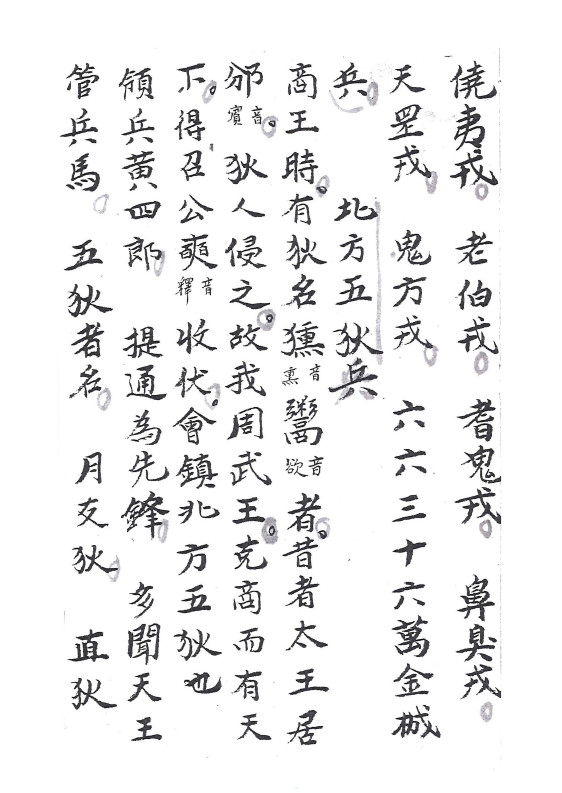 僥夷戎。 老伯戎。 耆鬼戎。 鼻臭戎。
天罡戎。 鬼方戎。 六六三十六萬金械
兵。 北方五狄兵
商王時。有狄名獯音熏鬻音欲者。昔者太王居
邠音賓。狄人侵之。故我周武王。克商而有天
下。得召公奭音釋收伏。會鎮北方五狄也
領兵黃四郎 提通為先鋒 多聞天王
管兵馬。 五狄者名。 月支狄 直狄